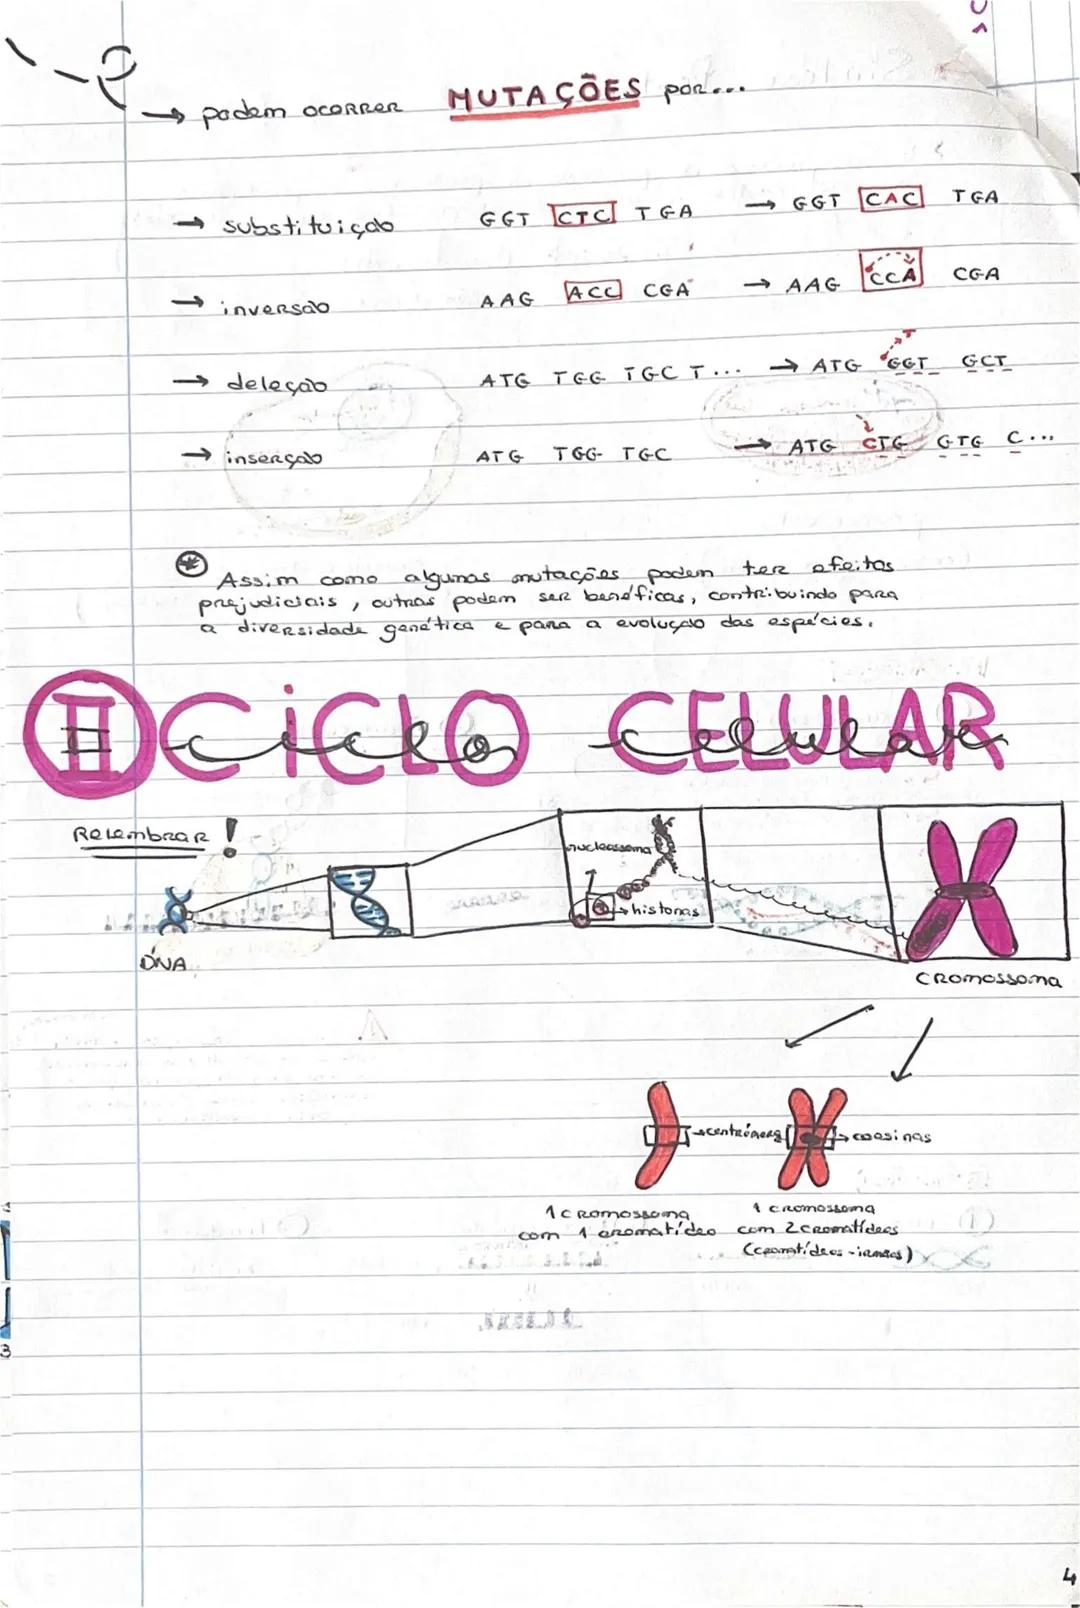 → podem ocorrer MUTAÇÕES por...
→ substituição GGT CTC TGA → GGT CAC TGA
→ inversão AAG ACC CGA → AAG CCA CGA
T
→ deleção ATG TGG TGC T... → ATG GGT GCT
→ inserção ATG TGG TGC → ATG CTG GTG C...
Assim como algumas mutações podem ter efeitos
prejudiciais, outras podem ser benéficas, contribuindo para
a diversidade genética e para a evolução das espécies.
II CICLO CELULAR
ciclo celular
Relembrar!
nucleossoma
→ histonas
DNA
cromossoma
→ centrómero
→ coesinas
1 cromossoma
com 1 cromatídeo
1 cromossoma
com 2 cromatídeos
(cromatídeos-irmãos)
3
4